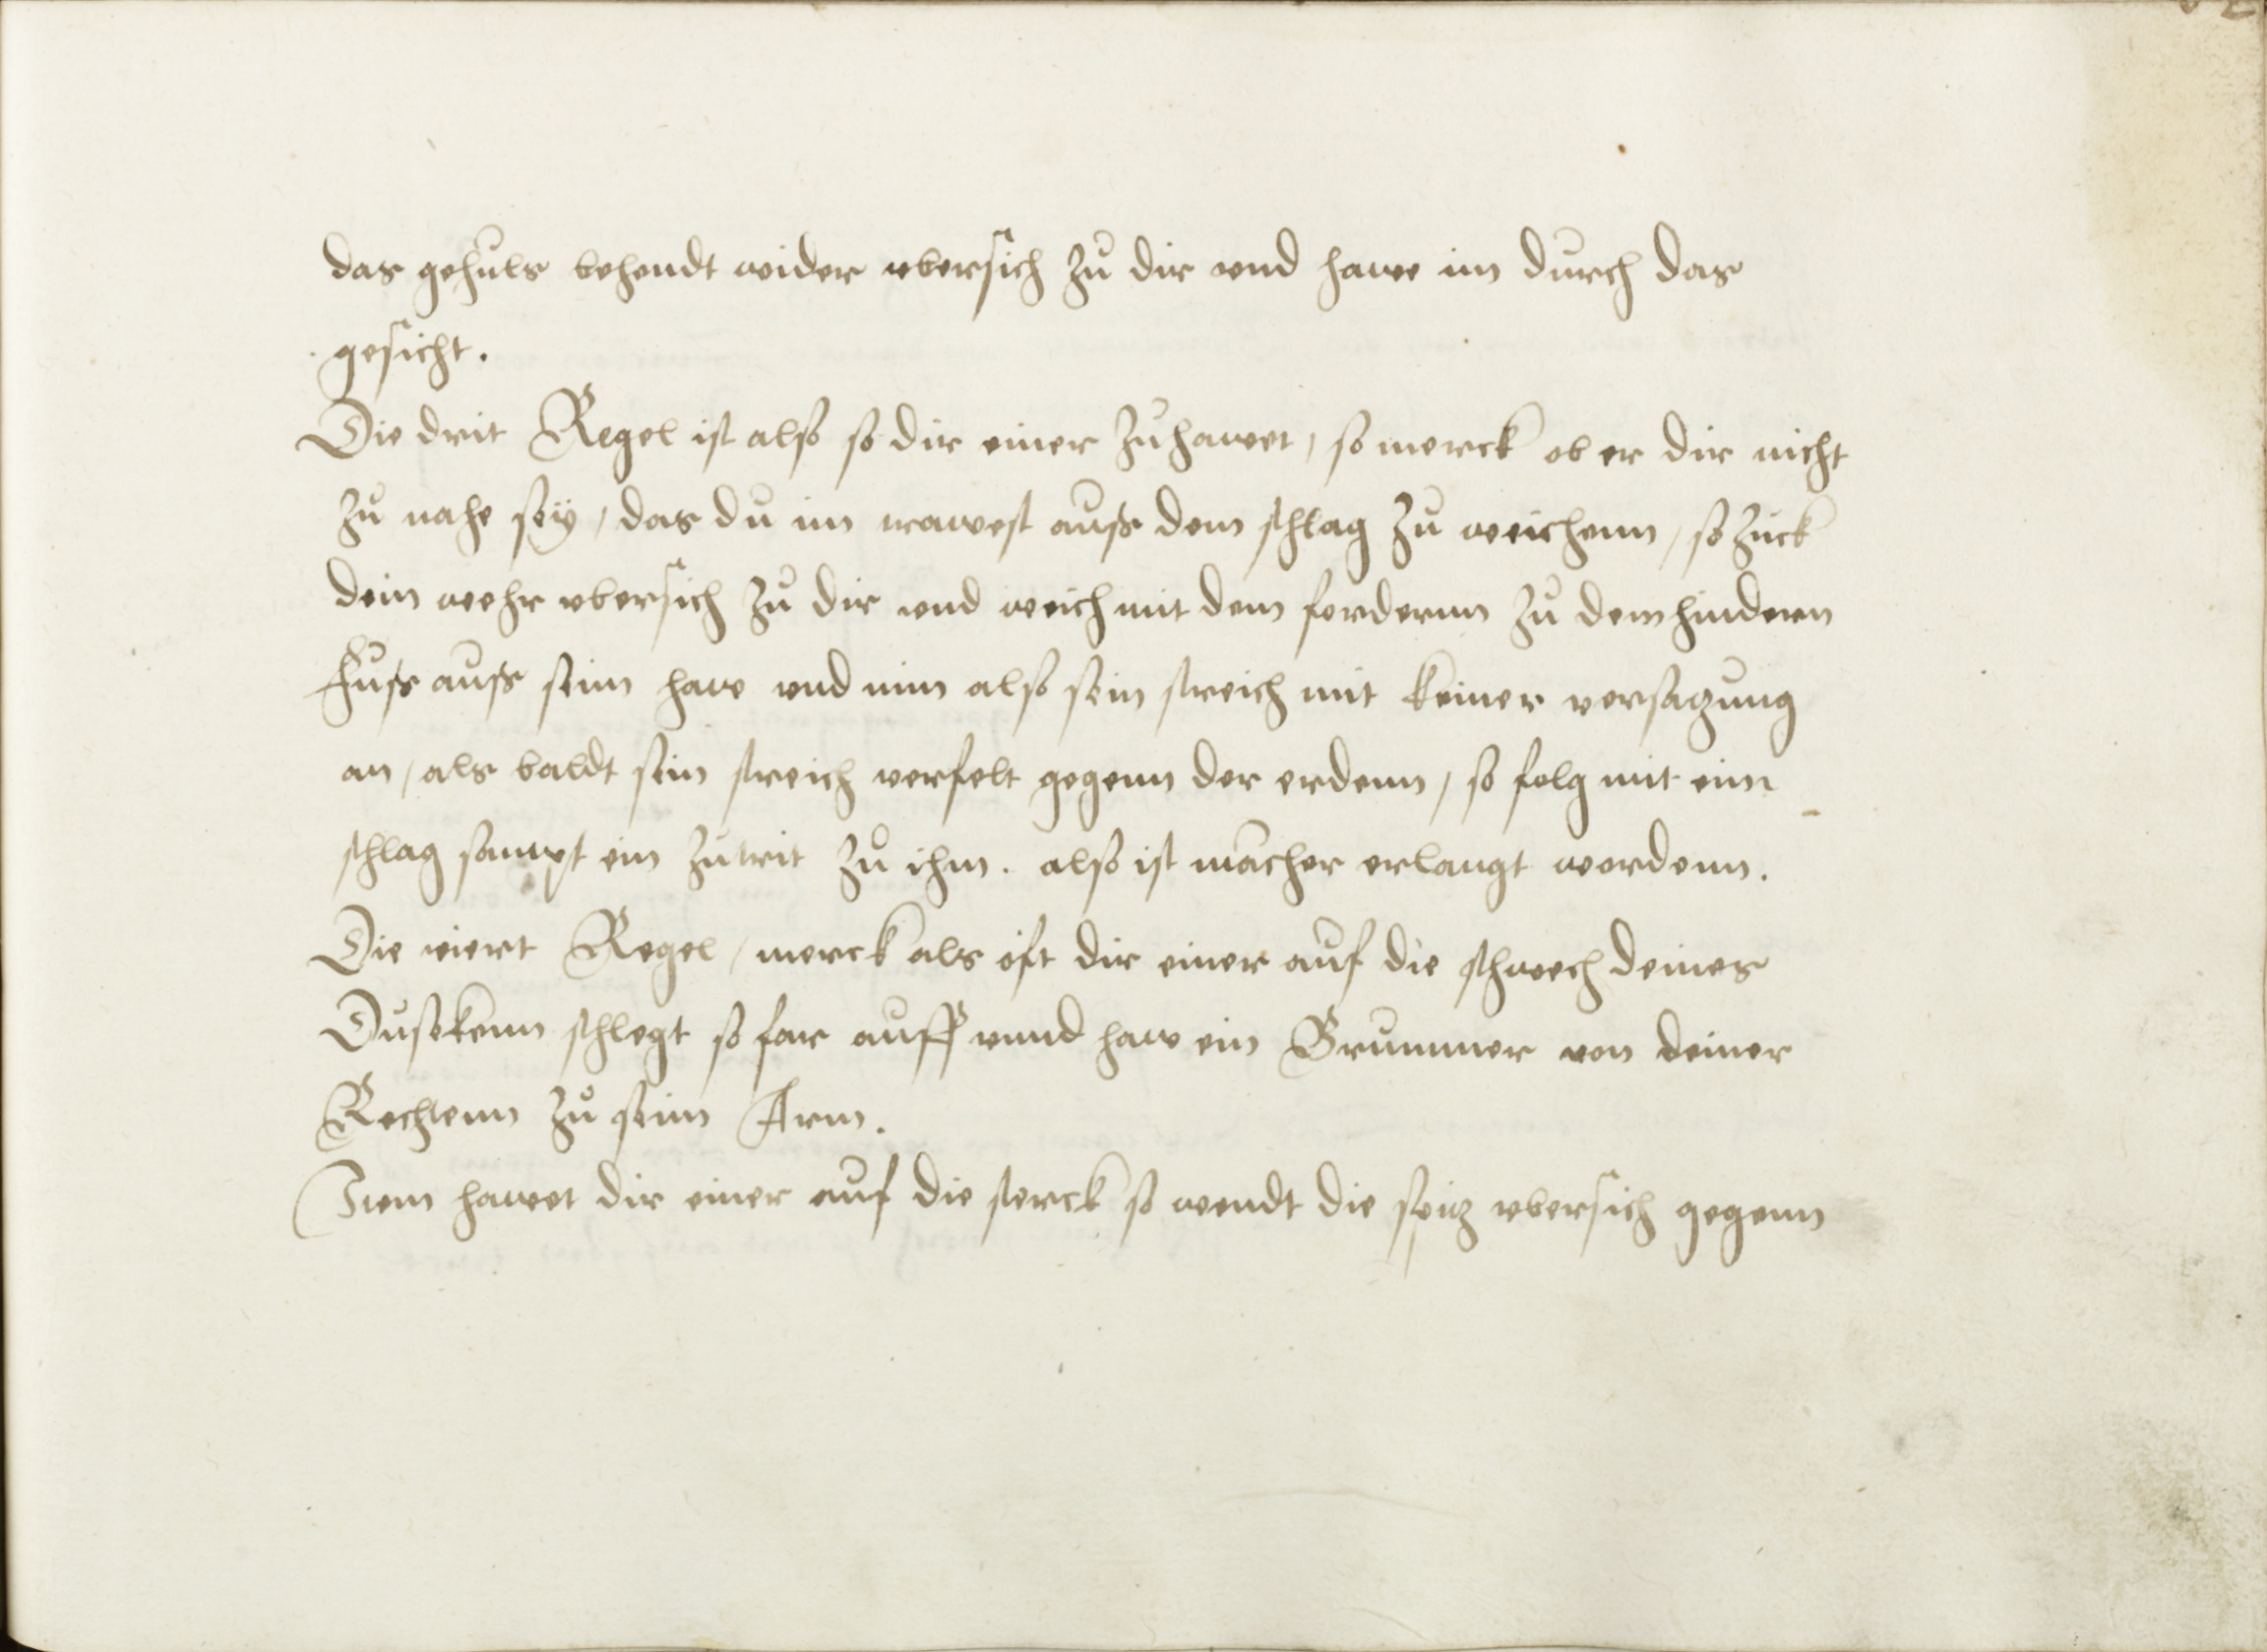 das gehuls behendt wider vbersich zu dir vnd hawe im durch das
gesicht.
Die drit Regel ist also so dir einer zuhawet, so merck ob er dir nicht
zu nahe sey, das du im trawest auß dem schlag zu weichenn, so zuck
dein wehr vbersich zu dir vnd weich mit dem fordernn zu dem hindern
Fuß auß seim haw vnd nim also sein streich mit keiner versatzung
an, als baldt sein streich verfelt gegenn der erdenn, so folg mit eim
schlag sampt eim zutrit zů ihm. also ist mācher erlangt wordenn.
Die viert Regel, merck als oft dir einer auf die schwech deines
Dusekenn schlegt so far auff vnnd haw ein Brummer von deiner
Rechtenn zů seim Arm.
Item hawet dir einer auf die sterck so wendt die spitz vbersich gegenn